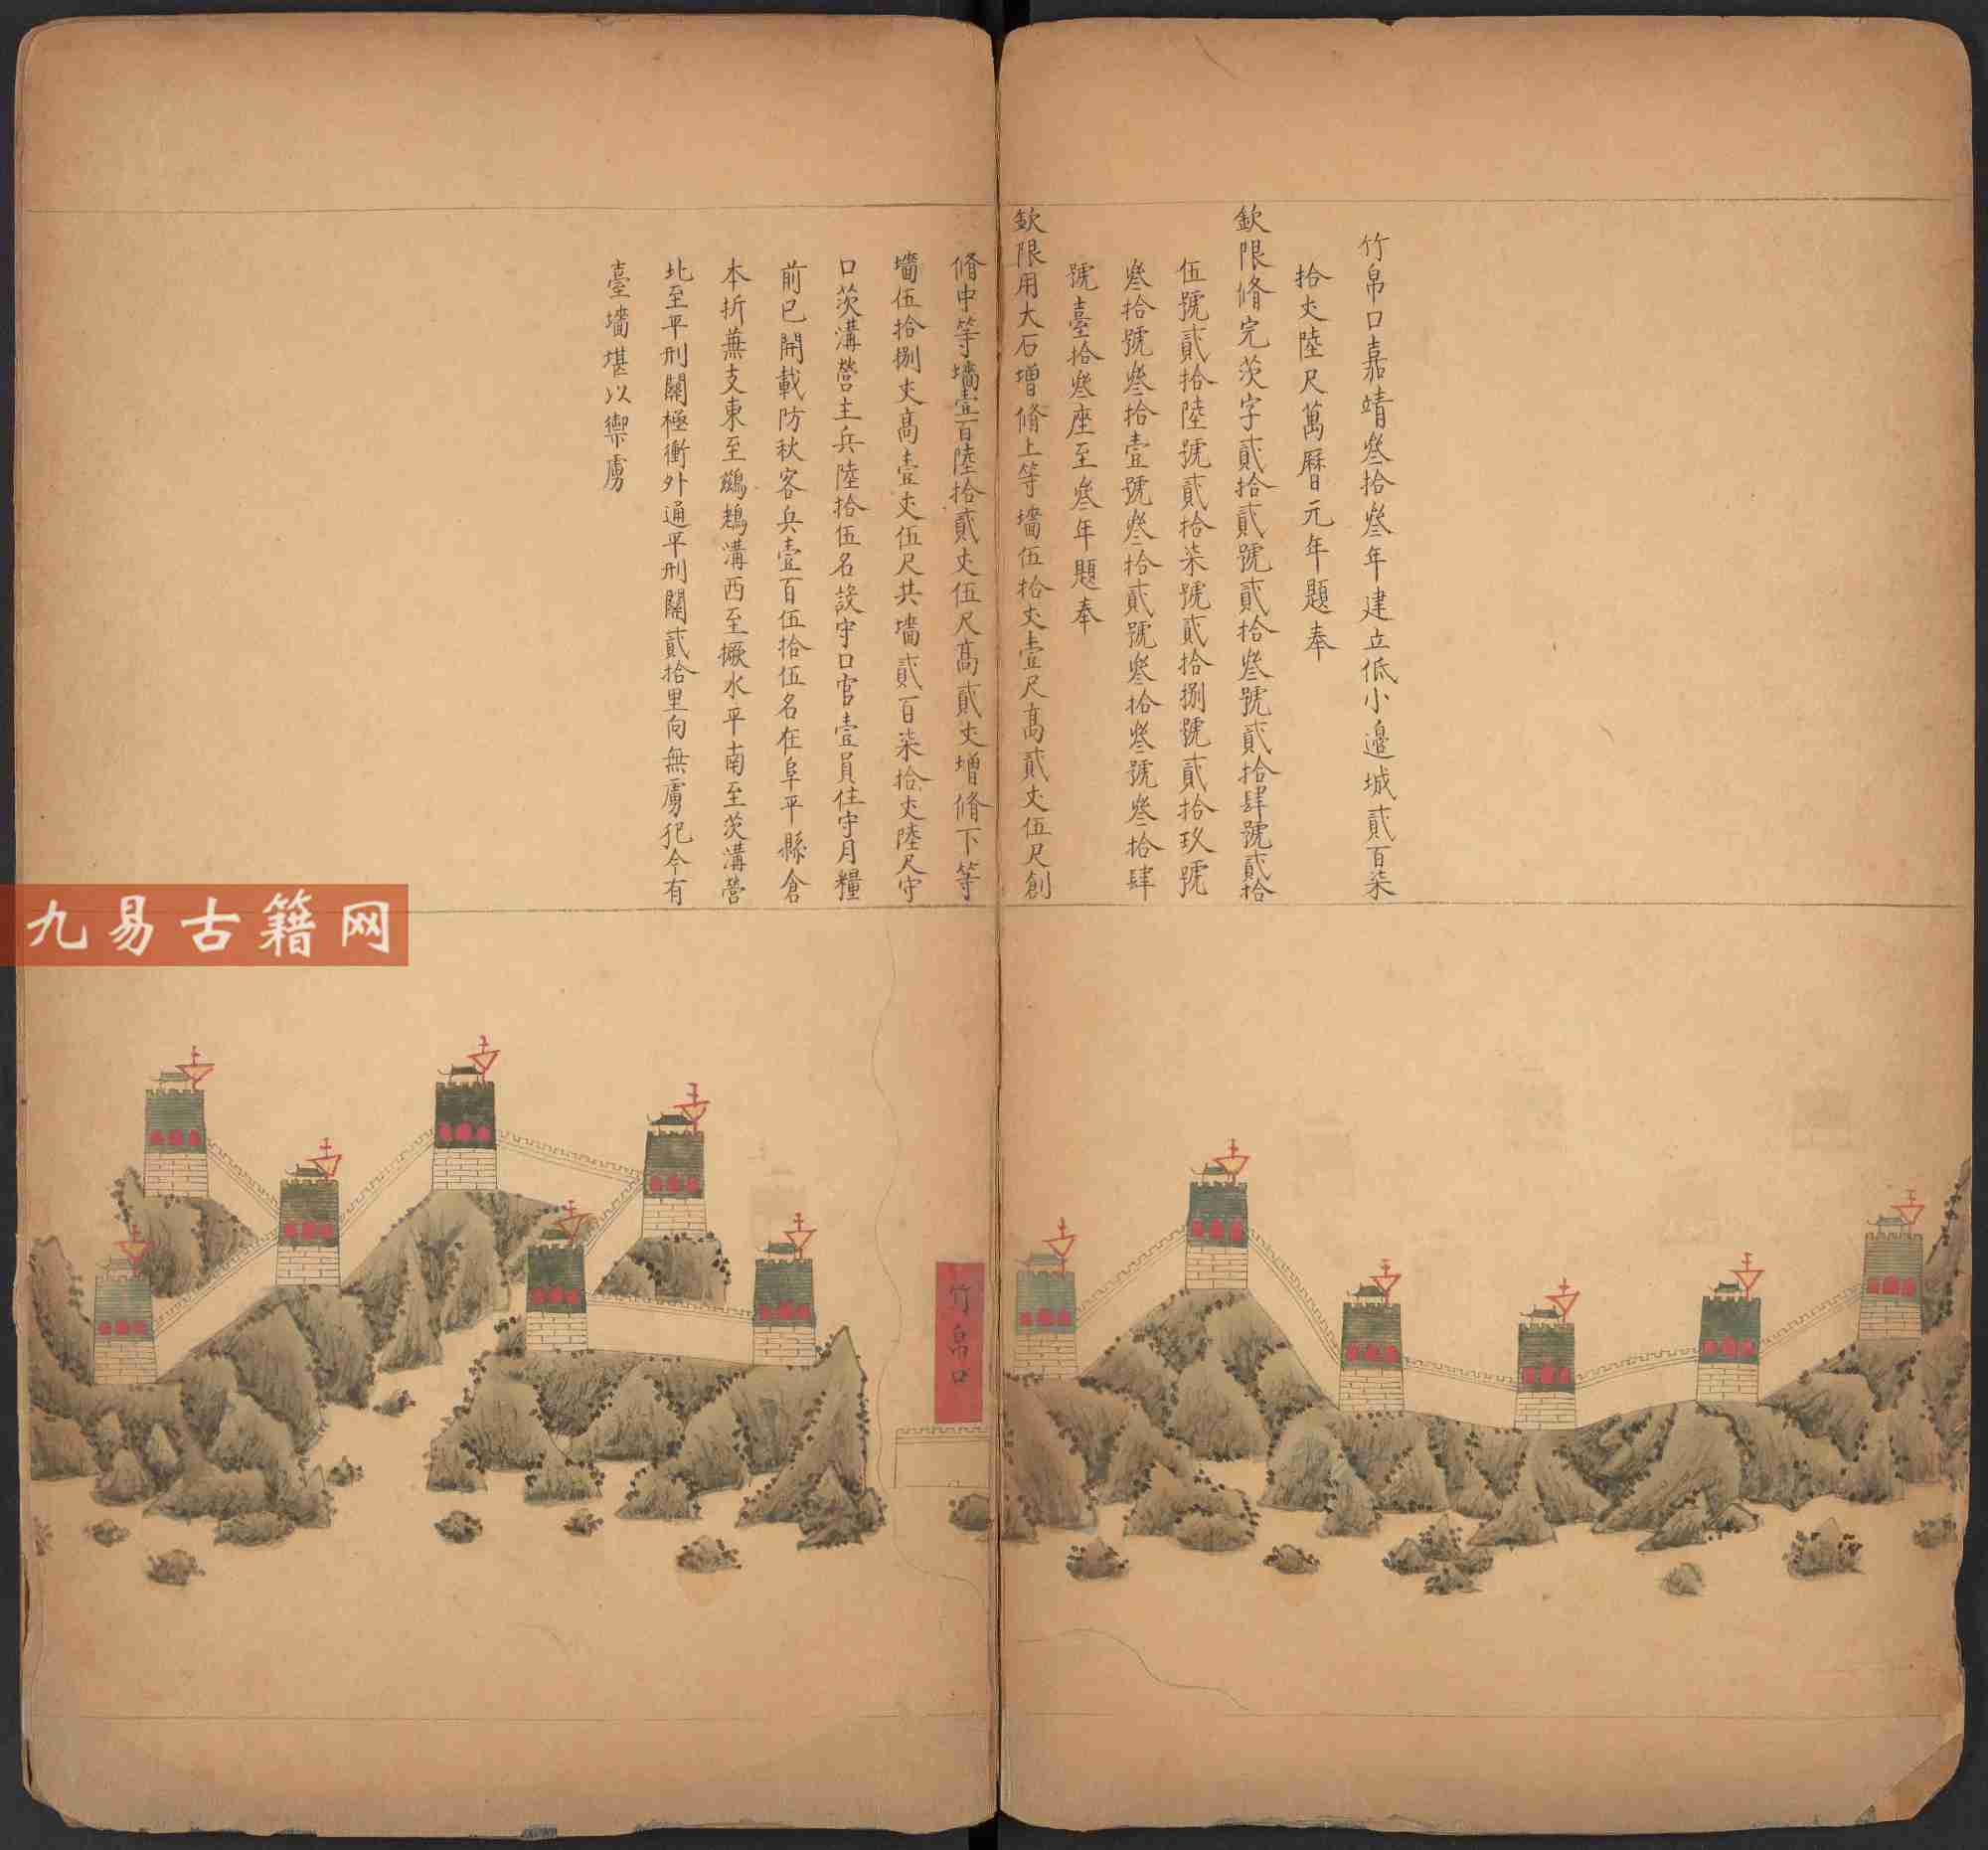 竹帛口嘉靖叄拾叄年建立低小邊城貳百柒
拾丈陸尺萬曆元年題奉
欽限脩完茨字貳拾貳號貳拾叄號貳拾肆號貳拾
伍號貳拾陸號貳拾柒號貳拾捌號貳拾玖號
叄拾號叄拾壹號叄拾貳號叄拾叄號叄拾肆
號臺拾叄座至叄年題奉
欽限用大石增脩上等墻伍拾丈壹尺高貳丈伍尺創
脩中等墻壹百陸拾貳丈伍尺高貳丈增脩下等
墻伍拾捌丈高壹丈伍尺共墻貳百柒拾丈陸尺守
口茨溝營主兵陸拾伍名設守口官壹員住守月糧
前已開載防秋客兵壹百伍拾伍名在阜平縣倉
本折蕪支東至鷀鵣溝西至橛水平南至茨溝營
北至平刑關極衝外通平刑關貳拾里向無虜犯今有
臺墻堪以禦虜
竹帛口
九易古籍网